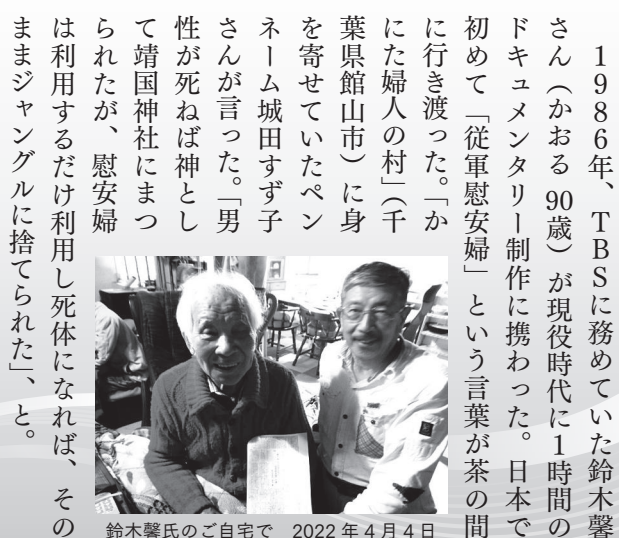 １９８６年、ＴＢＳに務めていた鈴木馨
さん（かおる 90歳）が現役時代に１時間の
ドキュメンタリー制作に携わった。日本で
初めて「従軍慰安婦」という言葉が茶の間
に行き渡った。「か
にた婦人の村」（千
葉県館山市）に身
を寄せていたペン
ネーム城田すず子
さんが言った。「男
性が死ねば神とし
て靖国神社にまつ
られたが、慰安婦
は利用するだけ利用し死体になれば、その
ままジャングルに捨てられた」、と。
鈴木馨氏のご自宅で　2022年4月4日